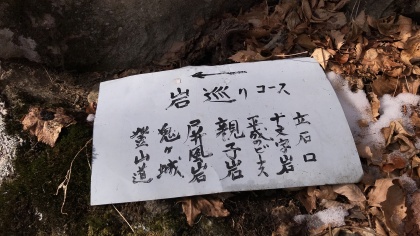 岩巡りコース
立石口
十文字岩
平成のピース
親子岩
屏風岩
鬼ヶ城
登山道